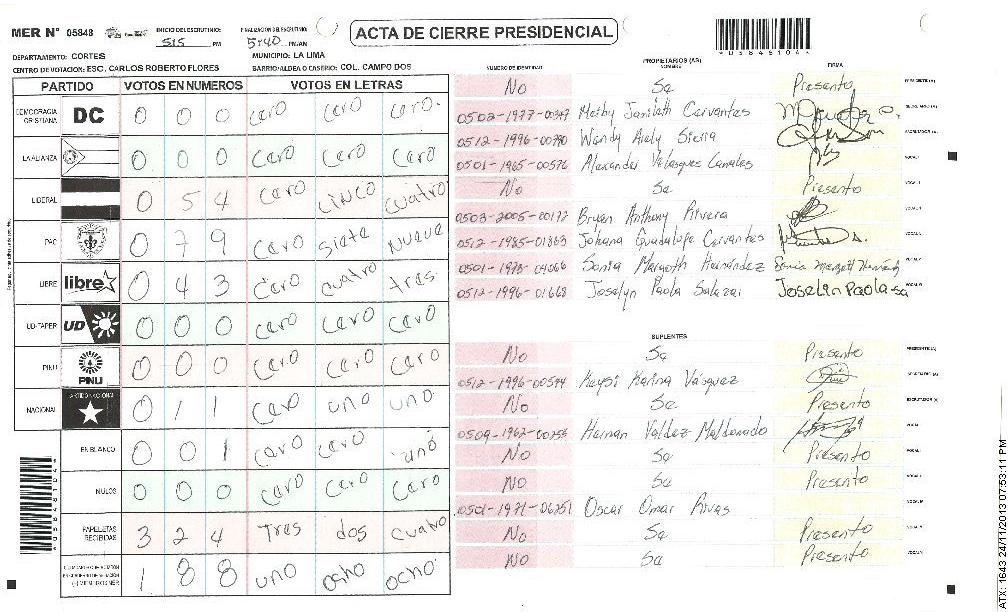 MER N° 05848
INICIO DEL ESCRUTINIO: 5:15 PM
FINALIZACION DEL ESCRUTINIO: 5:40 PM/AM
ACTA DE CIERRE PRESIDENCIAL
DEPARTAMENTO: CORTES
MUNICIPIO: LA LIMA
CENTRO DE VOTACION: ESC. CARLOS ROBERTO FLORES
BARRIO/ALDEA O CASERIO: COL. CAMPO DOS
PARTIDO VOTOS EN NUMEROS VOTOS EN LETRAS
DEMOCRACIA CRISTIANA DC 0 0 0 cero cero cero.
LA ALIANZA 0 0 0 cero cero cero
LIBERAL 0 5 4 cero cinco cuatro
PAC 0 7 9 cero siete nueve
LIBRE libre 0 4 3 cero cuatro tres
UD-FAPER UD 0 0 0 cero cero cero
PINU PINU 0 0 0 cero cero cero
NACIONAL PARTIDO NACIONAL 0 1 1 cero uno uno
EN BLANCO 0 0 1 cero cero uno
NULOS 0 0 0 cero cero cero
PAPELETAS RECIBIDAS 3 2 4 Tres dos cuatro
1 8 8 uno ocho ocho
PROPIETARIOS (AS)
NUMERO DE IDENTIDAD NOMBRE FIRMA
No Se Presento PRESIDENTE (A)
Janileth Cervantes SECRETARIO (A)
0512-1996-00780 Wendy Arely Sierra ESCRUTADOR (A)
0501-1965-00576 Alexander Velasques Canales VOCAL I
No Se Presento
Bryan Anthony Rivera
0512-1985-01863 Johana Guadalupe Cervantes
Sonia Margoth Hernández
0512-1996-01668 Joselyn Paola Salazar
SUPLENTES
No Se Presento PRESIDENTE (A)
0512-1996-00594 Keysi Karina Vásquez SECRETARIO (A)
No Se Presento ESCRUTADOR (A)
Hernan Valdez Maldonado
No Se Presento
No Se Presento
0501-1971-06251 Oscar Omar Rivas
No Se Presento
No Se Presento
ATX: 1643 24/11/2013 07:53:11 PM